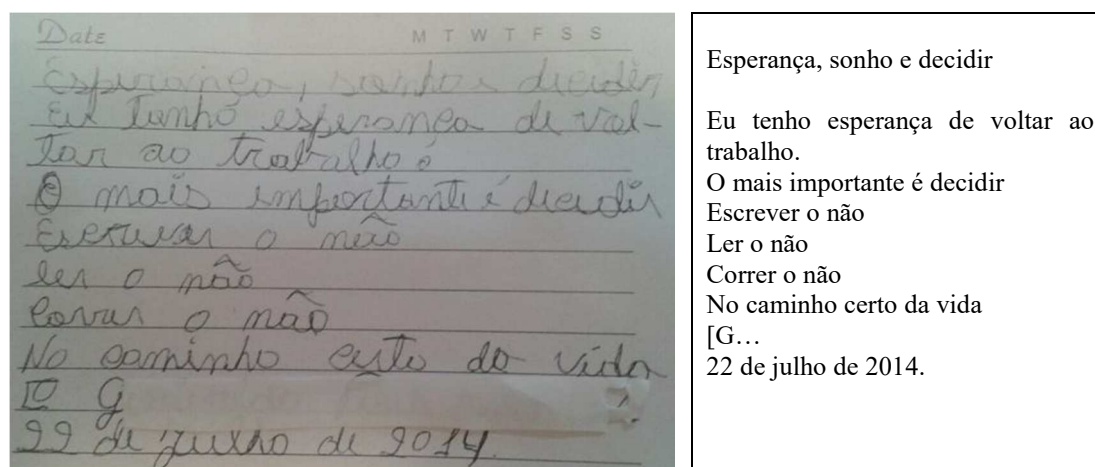 Date M T W T F S S
Esperança, sonho e decidir
Eu tenho esperança de vol-
tar ao trabalho.
O mais importante é decidir
Escrever o não
ler o não
Correr o não
No caminho certo da vida
G
22 de julho de 2014.
Esperança, sonho e decidir
Eu tenho esperança de voltar ao
trabalho.
O mais importante é decidir
Escrever o não
Ler o não
Correr o não
No caminho certo da vida
[G…
22 de julho de 2014.